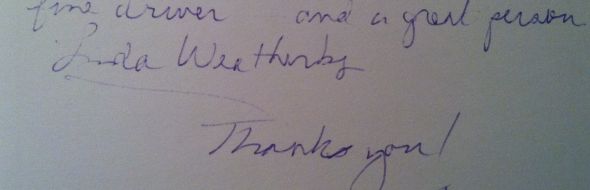 fine driver and a great person
Linda Weatherby
Thanks you!